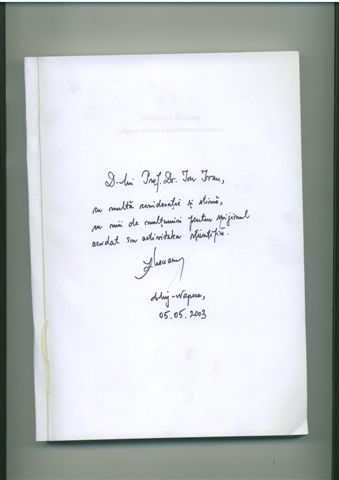 D-lui Prof. Dr. Ion Ivan,
cu multă considerație și stimă,
cu mii de mulțumiri pentru sprijinul
acordat în activitatea științifică.
Cluj-Napoca,
05.05.2003